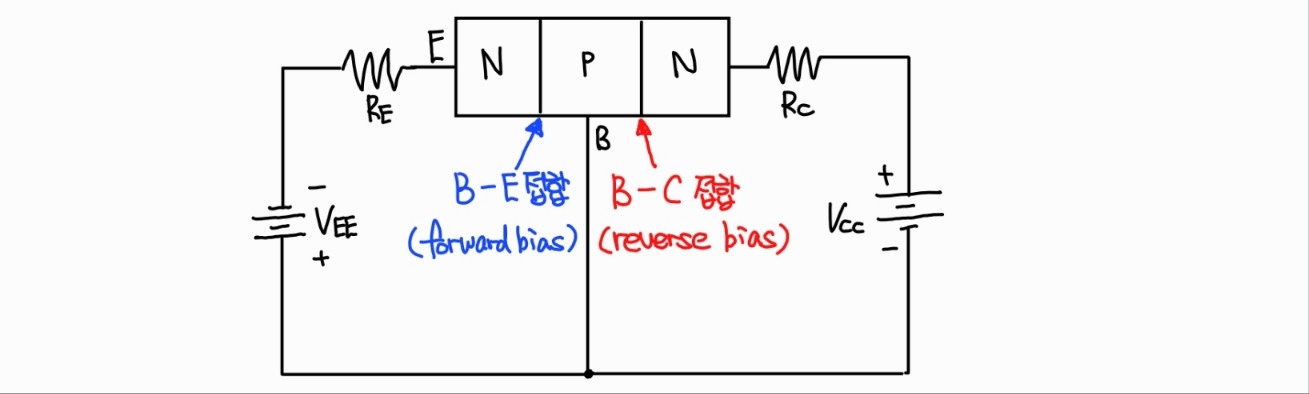 E
N
P
N
RE
RC
B
B-E접합
(forward bias)
B-C 접합
(reverse bias)
-
VEE
+
+
VCC
-